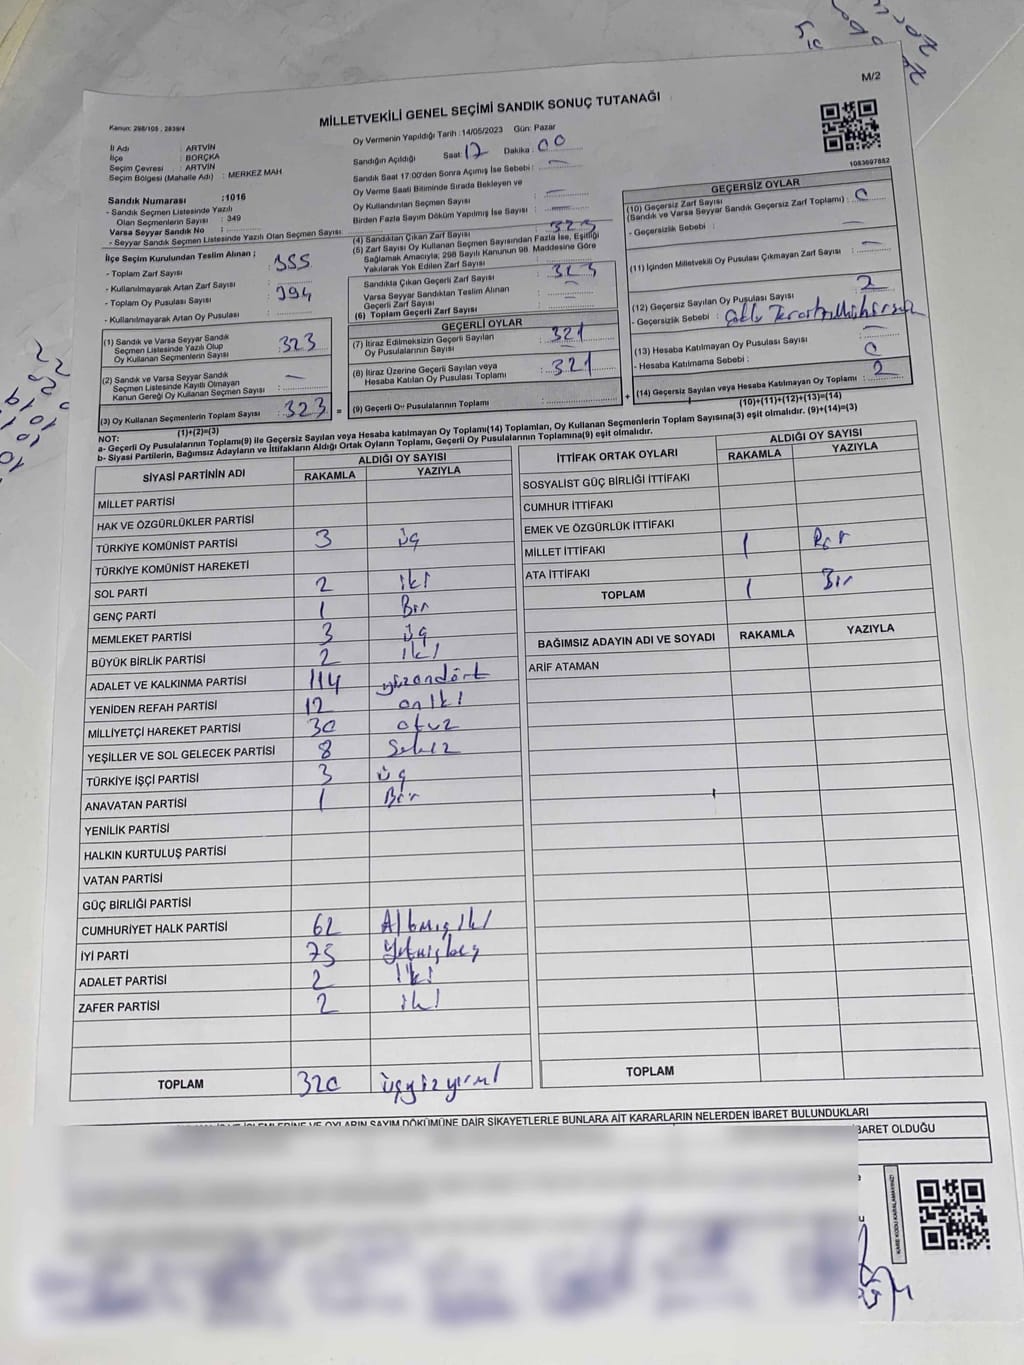 M/2
Kanun: 298/105 , 2839/4
MİLLETVEKİLİ GENEL SEÇİMİ SANDIK SONUÇ TUTANAĞI
1083697882
İl Adı : ARTVİN
İlçe : BORÇKA
Seçim Çevresi : ARTVİN
Seçim Bölgesi (Mahalle Adı) : MERKEZ MAH
Sandık Numarası :1016
- Sandık Seçmen Listesinde Yazılı
Olan Seçmenlerin Sayısı : 349
Varsa Seyyar Sandık No :
- Seyyar Sandık Seçmen Listesinde Yazılı Olan Seçmen Sayısı
Oy Vermenin Yapıldığı Tarih : 14/05/2023 Gün: Pazar
Sandığın Açıldığı Saat: 17 Dakika: 00
Sandık Saat 17:00'den Sonra Açımış İse Sebebi : —
Oy Verme Saati Bitiminde Sırada Bekleyen ve
Oy Kullandırılan Seçmen Sayısı —
Birden Fazla Sayım Döküm Yapılmış İse Sayısı —
İlçe Seçim Kurulundan Teslim Alınan ;
- Toplam Zarf Sayısı : 355
- Kullanılmayarak Artan Zarf Sayısı :
- Toplam Oy Pusulası Sayısı : 394
- Kullanılmayarak Artan Oy Pusulası :
(1) Sandık ve Varsa Seyyar Sandık
Seçmen Listesinde Yazılı Olup
Oy Kullanan Seçmenlerin Sayısı : 323
(2) Sandık ve Varsa Seyyar Sandık
Seçmen Listesinde Kayıtlı Olmayan
Kanun Gereği Oy Kullanan Seçmen Sayısı : —
(3) Oy Kullanan Seçmenlerin Toplam Sayısı : 323 =
(1)+(2)=(3)
(4) Sandıktan Çıkan Zarf Sayısı : 323
(5) Zarf Sayısı Oy Kullanan Seçmen Sayısından Fazla İse, Eşitliği
Sağlamak Amacıyla; 298 Sayılı Kanunun 98. Maddesine Göre
Yakılarak Yok Edilen Zarf Sayısı : —
Sandıkta Çıkan Geçerli Zarf Sayısı : 323
Varsa Seyyar Sandıktan Teslim Alınan
Geçerli Zarf Sayısı : —
(6) Toplam Geçerli Zarf Sayısı :
GEÇERLİ OYLAR
(7) İtiraz Edilmeksizin Geçerli Sayılan
Oy Pusulalarının Sayısı : 321
(8) İtiraz Üzerine Geçerli Sayılan veya
Hesaba Katılan Oy Pusulası Toplamı : 321
(9) Geçerli Oy Pusulalarının Toplamı : +
GEÇERSİZ OYLAR
(10) Geçersiz Zarf Sayısı
(Sandık ve Varsa Seyyar Sandık Geçersiz Zarf Toplamı) : 0
- Geçersizlik Sebebi : —
(11) İçinden Milletvekili Oy Pusulası Çıkmayan Zarf Sayısı : —
(12) Geçersiz Sayılan Oy Pusulası Sayısı : 2
- Geçersizlik Sebebi :
(13) Hesaba Katılmayan Oy Pusulası Sayısı : —
- Hesaba Katılmama Sebebi : 0
(14) Geçersiz Sayılan veya Hesaba Katılmayan Oy Toplamı : 2
(10)+(11)+(12)+(13)=(14)
NOT:
a- Geçerli Oy Pusulalarının Toplamı(9) ile Geçersiz Sayılan veya Hesaba katılmayan Oy Toplamı(14) Toplamları, Oy Kullanan Seçmenlerin Toplam Sayısına(3) eşit olmalıdır. (9)+(14)=(3)
b- Siyasi Partilerin, Bağımsız Adayların ve İttifakların Aldığı Ortak Oyların Toplamı, Geçerli Oy Pusulalarının Toplamına(9) eşit olmalıdır.
SİYASİ PARTİNİN ADI ALDIĞI OY SAYISI
RAKAMLA YAZIYLA
MİLLET PARTİSİ
HAK VE ÖZGÜRLÜKLER PARTİSİ
TÜRKİYE KOMÜNİST PARTİSİ 3 üç
TÜRKİYE KOMÜNİST HAREKETİ
SOL PARTİ 2 iki
GENÇ PARTİ 1 Bir
MEMLEKET PARTİSİ 3 üç
BÜYÜK BİRLİK PARTİSİ 2 iki
ADALET VE KALKINMA PARTİSİ 114 yüzondört
YENİDEN REFAH PARTİSİ 12 oniki
MİLLİYETÇİ HAREKET PARTİSİ 30 otuz
YEŞİLLER VE SOL GELECEK PARTİSİ 8 Sekiz
TÜRKİYE İŞÇİ PARTİSİ 3 üç
ANAVATAN PARTİSİ 1 Bir
YENİLİK PARTİSİ
HALKIN KURTULUŞ PARTİSİ
VATAN PARTİSİ
GÜÇ BİRLİĞİ PARTİSİ
CUMHURİYET HALK PARTİSİ 62 Altmış iki
İYİ PARTİ 75 Yetmişbeş
ADALET PARTİSİ 2 iki
ZAFER PARTİSİ 2 iki
TOPLAM 320 üçyüzyirmi
İTTİFAK ORTAK OYLARI ALDIĞI OY SAYISI
RAKAMLA YAZIYLA
SOSYALİST GÜÇ BİRLİĞİ İTTİFAKI
CUMHUR İTTİFAKI
EMEK VE ÖZGÜRLÜK İTTİFAKI
MİLLET İTTİFAKI 1 Bir
ATA İTTİFAKI
TOPLAM 1 Bir
BAĞIMSIZ ADAYIN ADI VE SOYADI RAKAMLA YAZIYLA
ARİF ATAMAN
TOPLAM
OYLARIN SAYIM DÖKÜMÜNE DAİR ŞİKAYETLERLE BUNLARA AİT KARARLARIN NELERDEN İBARET BULUNDUKLARI
BARET OLDUĞU
KARE KODU KARALAMAYINIZ!